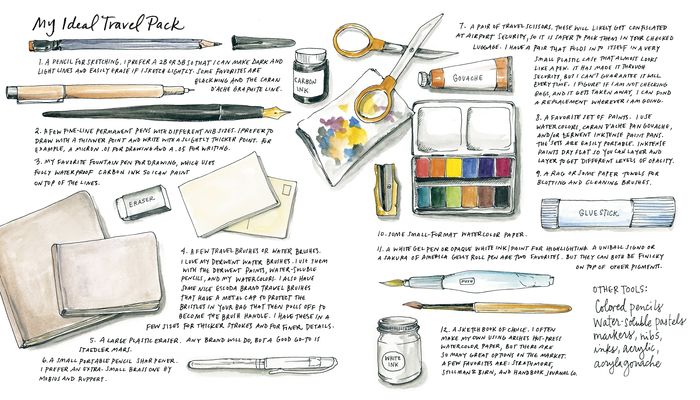 My Ideal Travel Pack
1. A PENCIL FOR SKETCHING. I PREFER A 2B OR 3B SO THAT I CAN MAKE DARK AND
LIGHT LINES AND EASILY ERASE IF I SKETCH LIGHTLY. SOME FAVORITES ARE
BLACKWING AND THE CARAN
D'ACHE GRAPHITE LINE.
CARBON
INK
2. A FEW FINE-LINE PERMANENT PENS WITH DIFFERENT NIB SIZES. I PREFER TO
DRAW WITH A THINNER POINT AND WRITE WITH A SLIGHTLY THICKER POINT. FOR
EXAMPLE, A MICRON .01 FOR DRAWING AND A .05 FOR WRITING.
3. MY FAVORITE FOUNTAIN PEN FOR DRAWING, WHICH USES
FULLY WATERPROOF CARBON INK SO I CAN PAINT
ON TOP OF THE LINES.
ERASER
4. A FEW TRAVEL BRUSHES OR WATER BRUSHES.
I LOVE MY DERWENT WATER BRUSHES. I USE THEM
WITH THE DERWENT PAINTS, WATER-SOLUBLE
PENCILS, AND MY WATERCOLORS. I ALSO HAVE
SOME NICE ESCODA BRAND TRAVEL BRUSHES
THAT HAVE A METAL CAP TO PROTECT THE
BRISTLES IN YOUR BAG THAT THEN PULLS OFF TO
BECOME THE BRUSH HANDLE. I HAVE THESE IN A
FEW SIZES FOR THICKER STROKES AND FOR FINER DETAILS.
5. A LARGE PLASTIC ERASER. ANY BRAND WILL DO, BUT A GOOD GO-TO IS
STAEDLER MARS.
6. A SMALL PORTABLE PENCIL SHARPENER.
I PREFER AN EXTRA-SMALL BRASS ONE BY
MOBIUS AND RUPPERT.
7. A PAIR OF TRAVEL SCISSORS. THESE WILL LIKELY GET CONFISCATED
AT AIRPORT SECURITY, SO IT IS SAFER TO PACK THEM IN YOUR CHECKED
LUGGAGE. I HAVE A PAIR THAT FOLDS IN TO ITSELF IN A VERY
SMALL PLASTIC CASE THAT ALMOST LOOKS
LIKE A PEN. IT HAS MADE IT THROUGH
SECURITY, BUT I CAN'T GUARANTEE IT WILL
EVERY TIME. I FIGURE IF I AM NOT CHECKING
BAGS, AND IT GETS TAKEN AWAY, I CAN FIND
A REPLACEMENT WHEREVER I AM GOING.
GOUACHE
8. A FAVORITE SET OF PAINTS. I USE
WATERCOLORS, CARAN D'ACHE PAN GOUACHE,
AND/OR DERWENT INKTENSE PAINT PANS.
THE SETS ARE EASILY PORTABLE. INKTENSE
PAINTS DRY FLAT SO YOU CAN LAYER AND
LAYER TO GET DIFFERENT LEVELS OF OPACITY.
9. A RAG OR SOME PAPER TOWELS FOR
BLOTTING AND CLEANING BRUSHES.
GLUE STICK
10. SOME SMALL-FORMAT WATERCOLOR PAPER.
11. A WHITE GEL PEN OR OPAQUE WHITE INK/PAINT FOR HIGHLIGHTING. A UNIBALL SIGNO OR
A SAKURA OF AMERICA GELLY ROLL PEN ARE TWO FAVORITES. BUT THEY CAN BOTH BE FINICKY
ON TOP OF OTHER PIGMENTS.
WHITE
INK
12. A SKETCHBOOK OF CHOICE. I OFTEN
MAKE MY OWN USING ARCHES HOT-PRESS
WATERCOLOR PAPER, BUT THERE ARE
SO MANY GREAT OPTIONS ON THE MARKET.
A FEW FAVORITES ARE: STRATHMORE,
STILLMAN & BIRN, AND HANDBOOK JOURNAL CO.
OTHER TOOLS:
Colored pencils
Water-soluble pastels
markers, nibs,
inks, acrylic,
acrylagouache